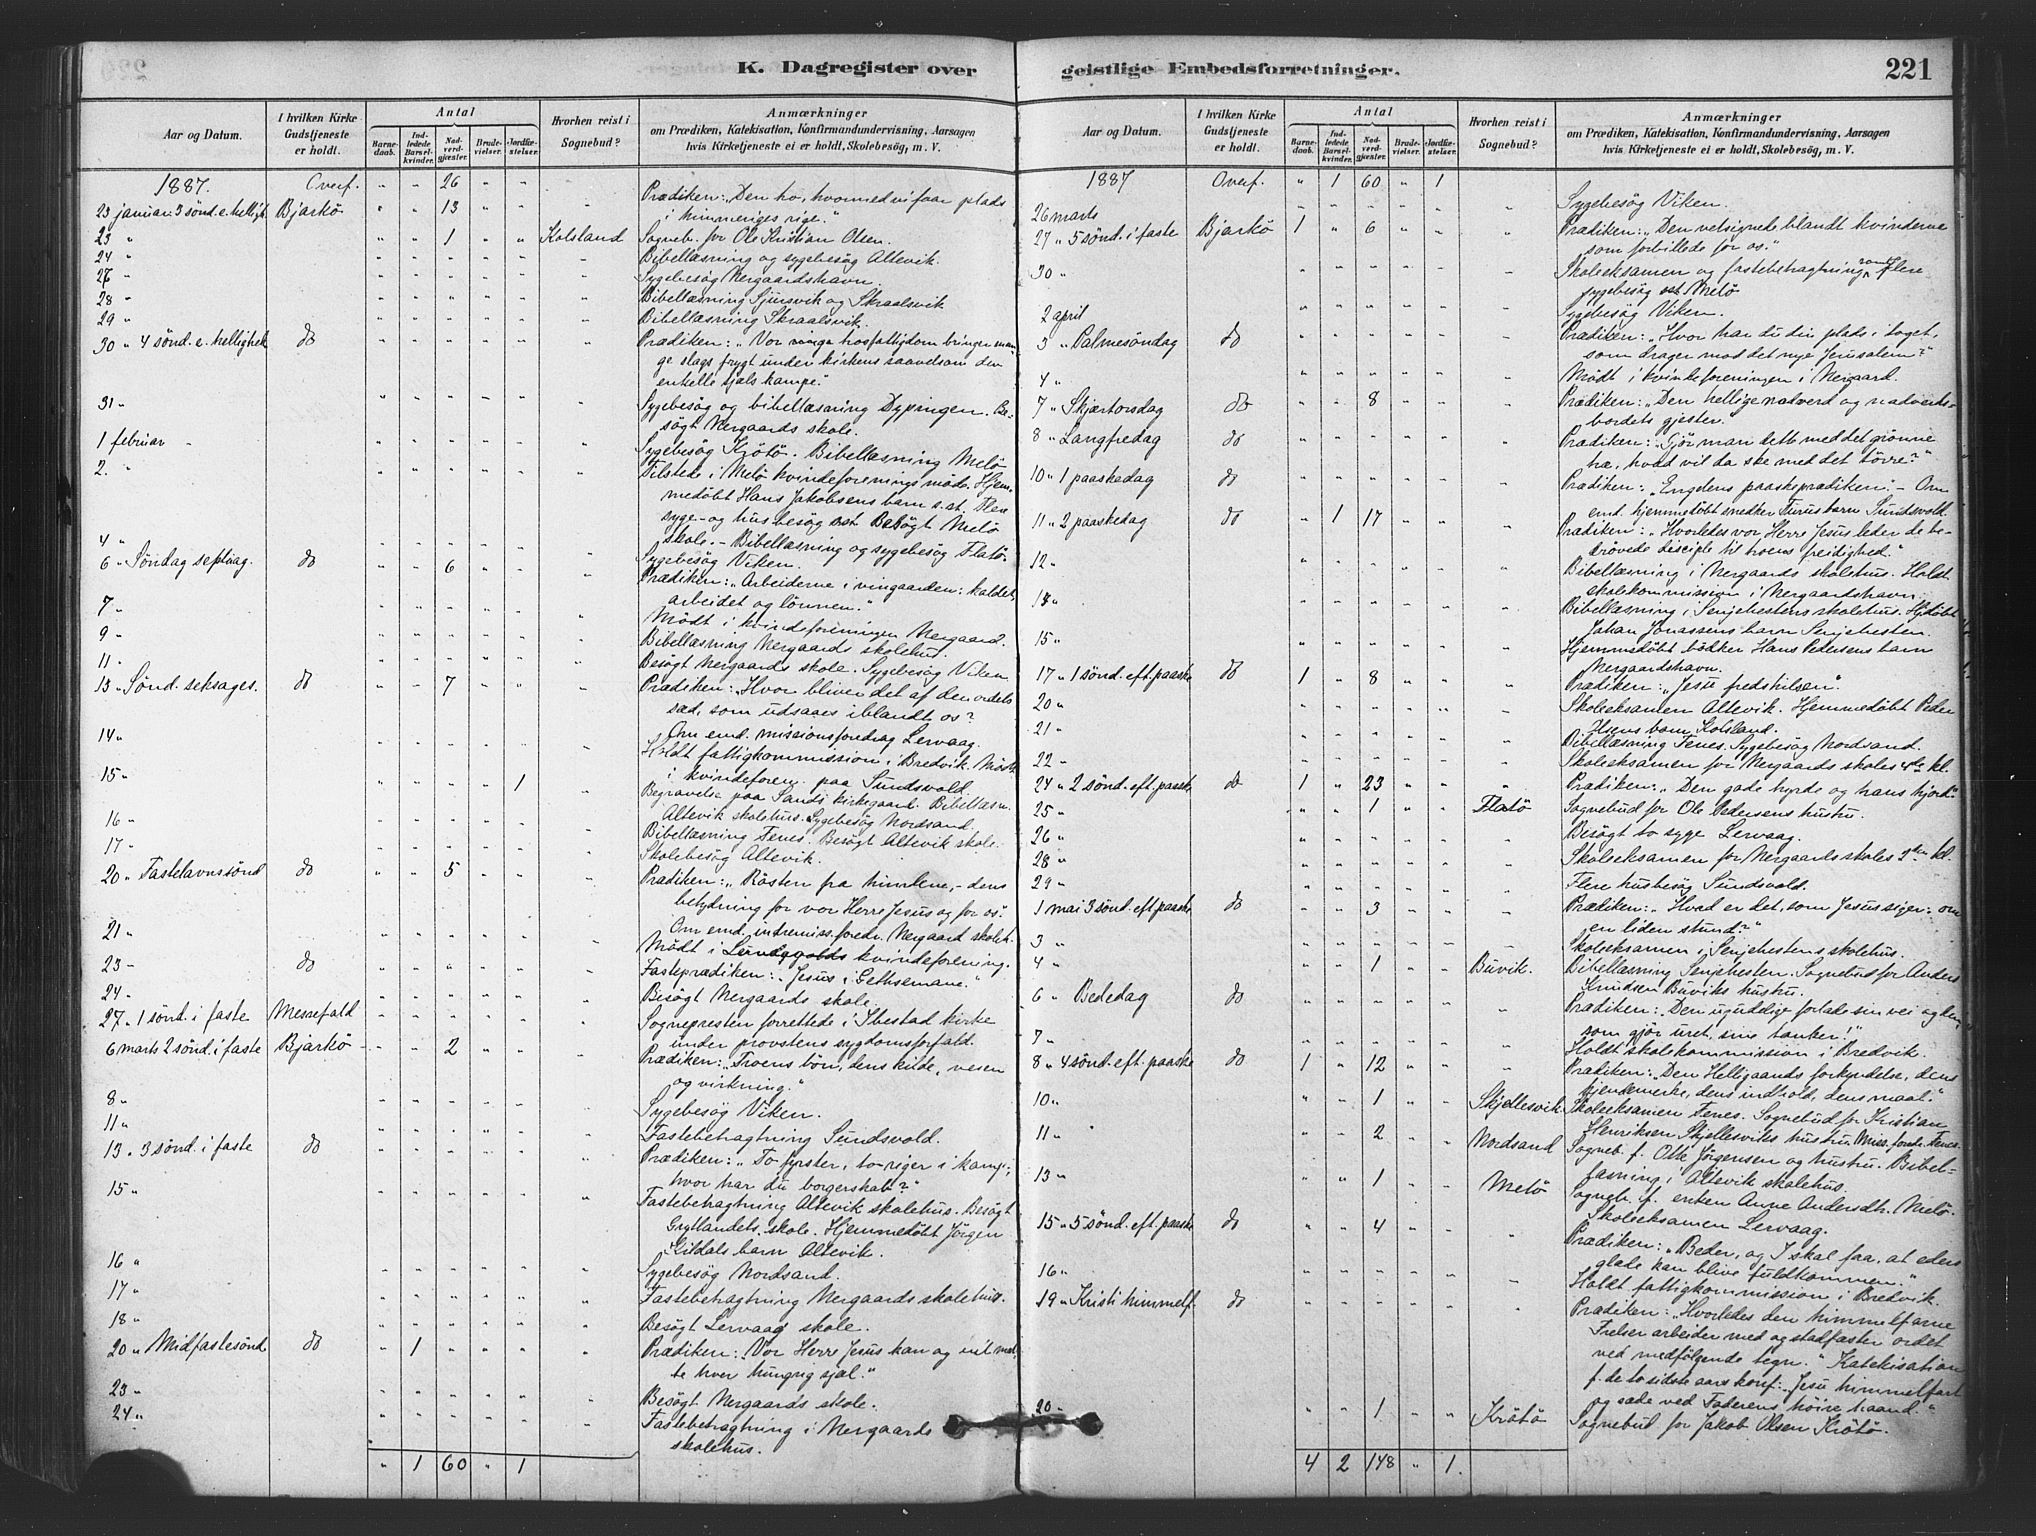 K. Dagregister over geistlige Embedsforretninger.
221
Aar og Datum.
I hvilken Kirke Gudstjeneste er holdt.
Antal
Barnedaab.
Indledede Barselkvinder.
Nadverdgjester.
Brudevielser.
Jordfæstelser.
Hvorhen reist i Sognebud?
Anmærkninger
om Prædiken, Katekisation, Konfirmandundervisning, Aarsagen
hvis Kirketjeneste ei er holdt, Skolebesøg, m. V.
1887. Overf. " " 26 " "
23 januar 3 sönd. e. helligt. Bjarkö " " 13 " " Prædiken: „Den ho, hvormed vi faar plads
i himmeriges rige."
23 " " " 1 " " Kolsland Sogneb. for Ole Kristian Olsen.
24 " Bibellæsning og sygebesög Altevik.
27 " Sygebesög Nergaardshavn.
28 " Bibellæsning Sjursvik og Skraalsvik
29 " Bibellæsning Skraalsvik.
30 " 4 sönd. e. hellighek do Prædiken: „Vor hosfattigdom bringer man-
ge slags frygt under kirkens saavelsom den
enkelte sjæls kampe."
31 " Sygebesög og bibellæsning Dypingen. Be-
sögt Nergaards skole.
1 februar " Sygebesög Krötö. Bibellæsning Metö
2. " Tilstede i Metö kvindeforenings möde. Hjem-
medöbt Hans Jakobsens barn s. st. Flere
syge- og husbesög Besögt Metö
skole. - Bibellæsning og sygebesög Flatö.
4 " Sygebesög Viken.
6 " Söndag septuag. do " " 6 " " Prædiken: „Arbeiderne i vingaarden: kaldet,
arbeidet og lönnen."
7 " Mödt i kvindeforeningen Nergaard.
9 " Bibellæsning Nergaards skolehus.
11 " Besögt Nergaards skole. Sygebesög Viken
13 " Sönd. seksages. do " " 7 " " Prædiken: „Hvor bliver det af den ordets
sæd, som udsaaes iblandt os?
Om emd. missionsforedrag Lervaag.
14 " Holdt fattigkommission i Bredvik. Mödt
i kvindeforen. paa Sundsvold.
15 " " " " " 1 Begravelse paa Sands kirkegaard. Bibellæsn.
Altevik skolehus. Sygebesög Nordsand.
16 " Bibellæsning Fenes. Besögt Altevik skole.
17 " Skolebesög Altevik.
20 " Fastelavnssönd do " " 5 " " Prædiken: „Rösten fra himlene, - dens
betydning for vor Herre Jesus og for os".
Om emd. indremiss.foredr. Nergaard skoleh.
21 " Mödt i kvindeforening.
23 " do Fasteprædiken: „Jesus i Gethsemane."
24 " Besögt Nergaards skole.
27 " 1 sönd. i faste Messefald Sognepresten forrettede i Ibestad kirke
under provstens sygdomsforfald.
6 marts 2 sönd. i faste Bjarkö " " 2 " " Prædiken: „Troens bön, dens kilde, vesen
og virkning."
8 " Sygebesög Viken.
11 " Fastebetragtning Sundsvold.
13 " 3 sönd. i faste do Prædiken: „To fyrster, to riger i kamp;
hvor har du borgerskab?"
15 " Fastebetragtning Altevik skolehus. Besögt
Gryllandets skole. Hjemmedöbt Jörgen
Kildals barn Altevik.
16 " Sygebesög Nordsand.
17 " Fastebetragtning Nergaards skolehus.
18 " Besögt Lervaag skole.
20 " Midfastesönd do " 1 " " " Prædiken: „Vor Herre Jesus kan og vil met-
te hver hungrig sjæl."
23 " Besögt Nergaards skole.
24 " Fastebetragtning i Nergaards
skolehus.
" 1 60 " 1
Aar og Datum.
I hvilken Kirke Gudstjeneste er holdt.
Antal
Barnedaab.
Indledede Barselkvinder.
Nadverdgjester.
Brudevielser.
Jordfæstelser.
Hvorhen reist i Sognebud?
Anmærkninger
om Prædiken, Katekisation, Konfirmandundervisning, Aarsagen
hvis Kirketjeneste ei er holdt, Skolebesøg, m. V.
1887 Overf. " 1 60 " 1
26 marts Sygebesög Viken.
27 " 5 sönd. i faste Bjarkö 1 " 6 " " Prædiken: „Den velsignede blandt kvinderne
som forbillede for os."
30 " Skoleeksamen og fastebetragtning samt flere
sygebesög Metö
2 april Sygebesög Viken.
3 " Palmesöndag do Prædiken: „Hvor har du din plads i toget,
som drager mod det nye Jerusalem?"
4 " Mödt i kvindeforeningen i Nergaard.
7 " Skjærtorsdag do " " 8 " " Prædiken: „Den hellige natverd og nadverds-
bordets gjester.
8 " Langfredag do Prædiken: „Gjör man dette med det grönne
træ, hvad vil da ske med det törre?"
10 " 1 paaskedag do Prædiken: „Englens paaskeprædiken". - Om
emd. hjemmedöbt snedker Furus barn Sundsvold.
11 " 2 paaskedag do " 1 17 " " Prædiken: „Hvorledes vor Herre Jesus leder de be-
drövede disciple til troens freidighed."
12 " Bibellæsning i Nergaards skolehus. Holdt
skolekommission i Nergaardshavn.
14 " Bibellæsning i Senjehestens skolehus. Hjdöbt
Johan Jonassens barn Senjehesten.
15 " Hjemmedöbt bödker Hans Pedersens barn
Nergaardshavn.
17 " 1 sönd. eft. paaske do 1 " 8 " " Prædiken: „Jesu fredshilsen".
20 " Skoleeksamen Altevik. Hjemmedöbt Peder
Olsens barn Kolsland.
21 " Bibellæsning Fenes. Sygebesög Nordsand.
22 " Skoleeksamen for Nergaards skoles 4de kl.
24 " 2 sönd. eft. paaske do 1 " 23 " " Prædiken: „Den gode hyrde og hans hjord".
25 " " " 1 " " Flatö Sognebud for Ole Pedersens hustru.
26 " Besögt to syge Lervaag.
28 " Skoleeksamen for Nergaards skoles 3den kl.
29 " Flere husbesög Sundsvold.
1 mai 3 sönd. eft. paaske do " " 3 " " Prædiken: „Hvad er det, som Jesus siger: om
en liden stund?"
3 " Skoleeksamen i Senjehestens skolehus.
4 " " " 1 " " Buvik. Bibellæsning Senjehesten. Sognebud for Anders
Knudsen Buviks hustru.
6 " Bededag do Prædiken: „Den ugudelige forlade sin vei og den,
som gjör uret, sine tanker!"
7 " Holdt skolekommission i Bredvik.
8 " 4 sönd. eft. paaske do 1 " 12 " " Prædiken: „Den Helligaands forkyndelse, dens
kjendemerke, dens indhold, dens maal."
10 " " " 1 " " Skjellesvik Skoleeksamen Fenes. Sognebud for Kristian
Henriksen Skjellesviks hustru. Miss.foredr. Fenes.
11 " " " 2 " " Nordsand Sogneb. f. Ole Jörgensen og hustru. Bibel-
læsning i Altevik skolehus.
13 " " " 1 " " Metö Sogneb. f. enken Anne Andersdtr. Metö.
Skoleeksamen Lervaag.
15 " 5 sönd. eft. paaske do " " 4 " " Prædiken: „Beder, og I skal faa, at eders
glæde kan blive fuldkommen."
16 " Holdt fattigkommission i Bredvik.
19 " Kristi himmelf. do Prædiken: „Hvorledes den himmelfarne
Frelser arbeider med og stadfæster ordet
ved medfölgende tegn." Katekisation
f. de to sidste aars konf.: „Jesu himmelfart
og sæde ved Faderens höire haand."
20 " " " 1 " " Krötö Sognebud for Jakob Olsen Krötö.
4 2 148 " 1.